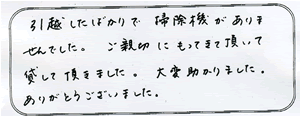 引越したばかりで 掃除機がありま
せんでした。 ご親切に もってきて頂いて
貸して頂きました。 大変助かりました。
ありがとうございました。